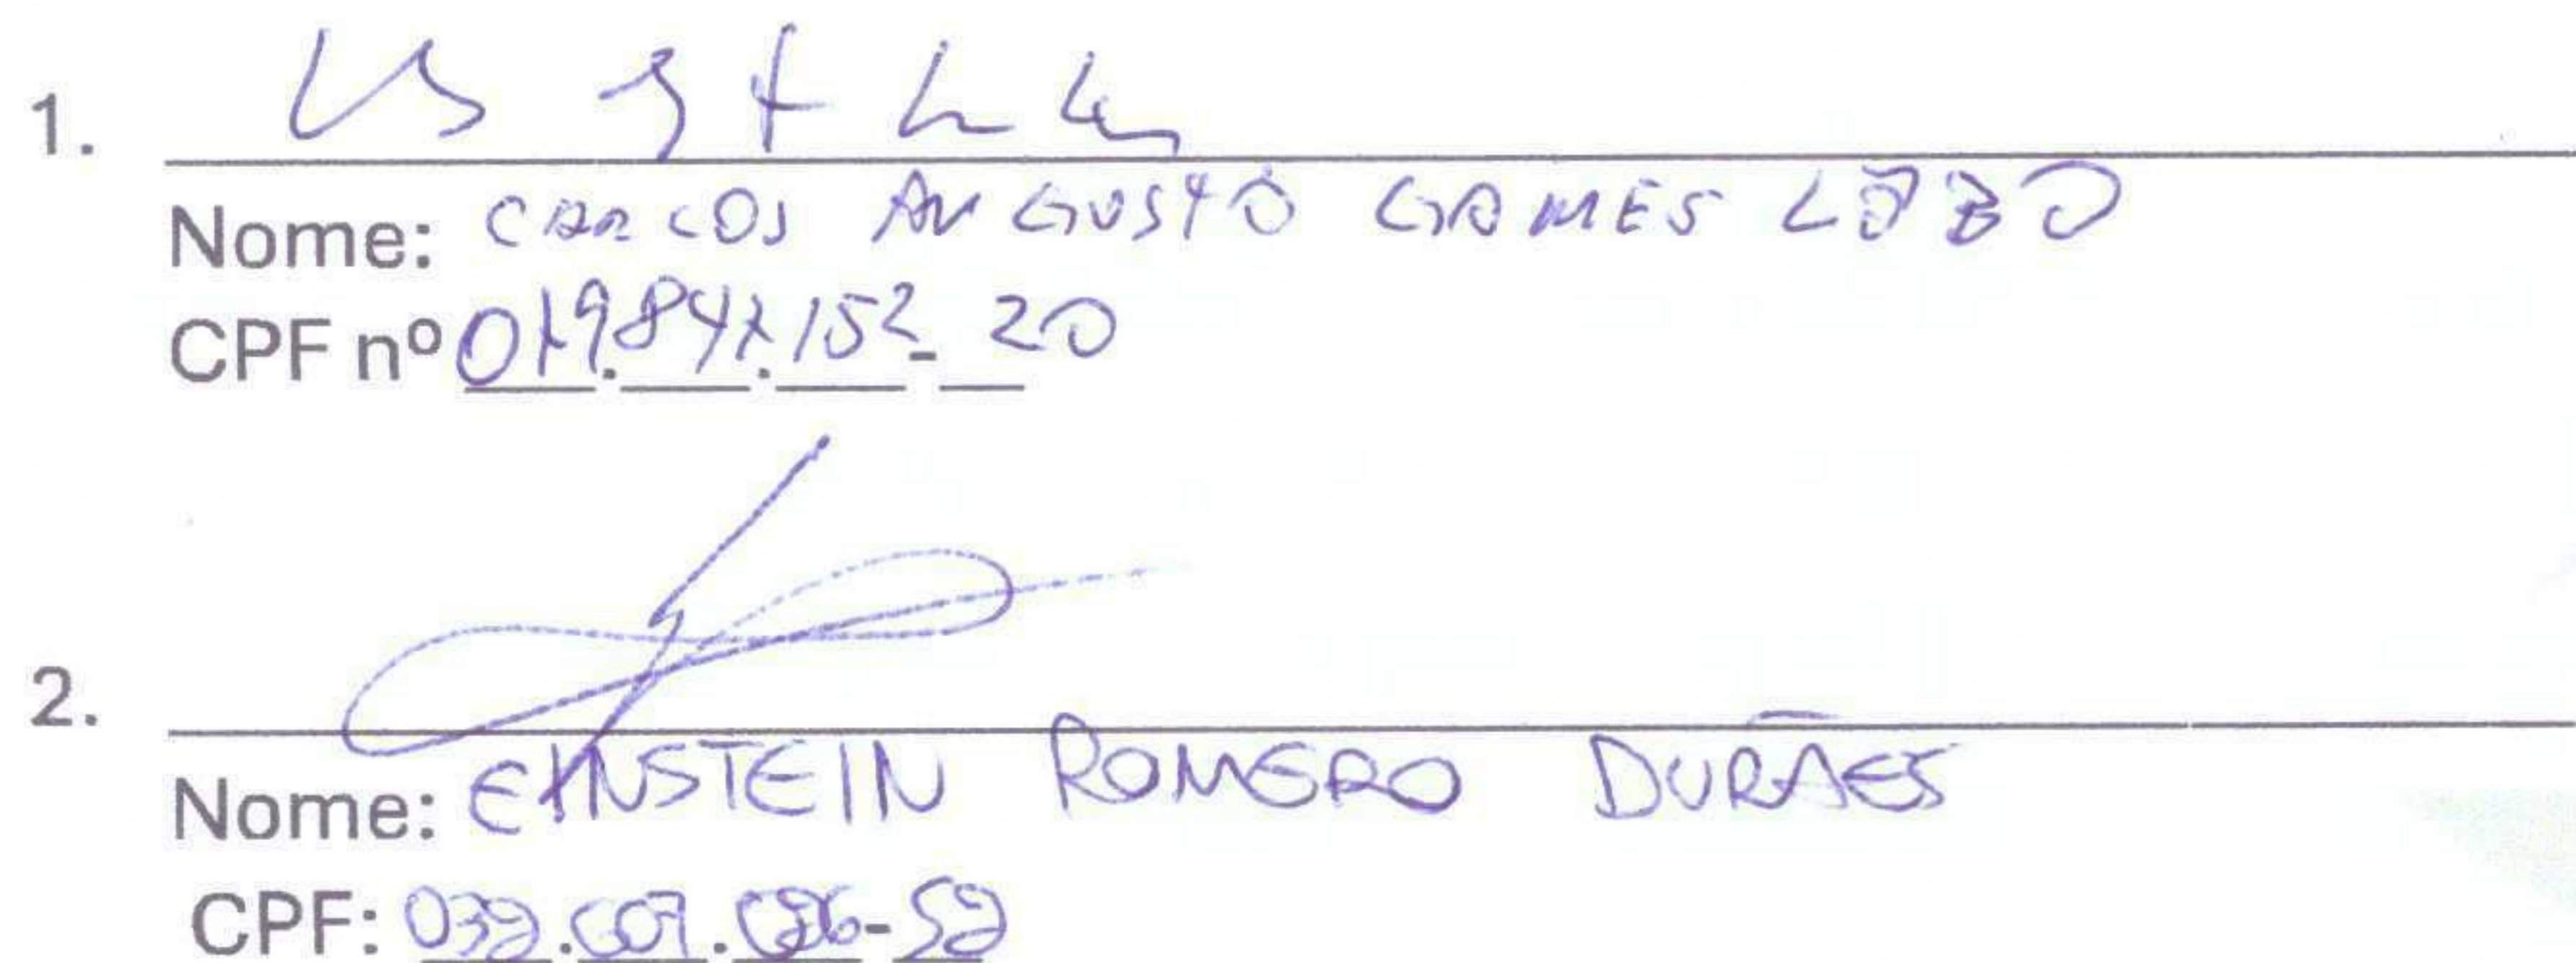 1.
Nome: CARLOS AUGUSTO GOMES LÔBO
CPF nº 017.847.152-20
2.
Nome: EINSTEIN ROMERO DURÃES
CPF: